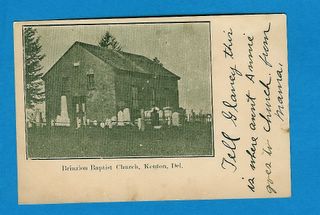 Brinzion Baptist Church, Kenton, Del.
Tell Glancy this
is where aunt Annie
goes to church from
Mama.